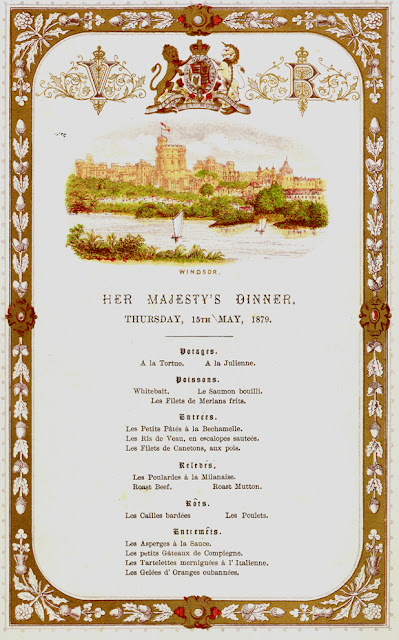 V R
WINDSOR.
HER MAJESTY'S DINNER.
THURSDAY, 15TH MAY, 1879.
Potages.
A la Tortue. A la Julienne.
Poissons.
Whitebait. Le Saumon bouilli.
Les Filets de Merlans frits.
Entrées.
Les Petits Pâtés à la Bechamelle.
Les Ris de Veau, en escalopes sautees.
Les Filets de Canetons, aux pois.
Relevés.
Les Poulardes à la Milanaise.
Roast Beef. Roast Mutton.
Rôts.
Les Cailles bardées Les Poulets.
Entremêts.
Les Asperges à la Sauce.
Les petits Gâteaux de Compiegne.
Les Tartelettes merniguées à l' Italienne.
Les Gelées d' Oranges cubannées.